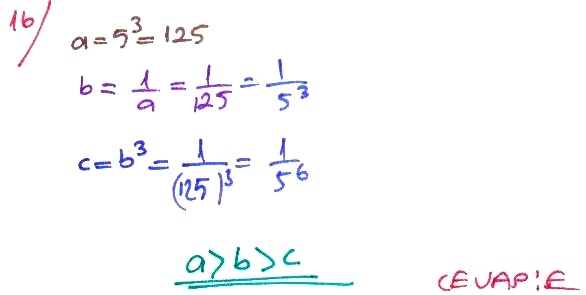 16/
a = 5³ = 125
b = 1/a = 1/125 = 1/5³
c = b³ = 1/(125)³ = 1/5⁶
a > b > c
CEVAP: E